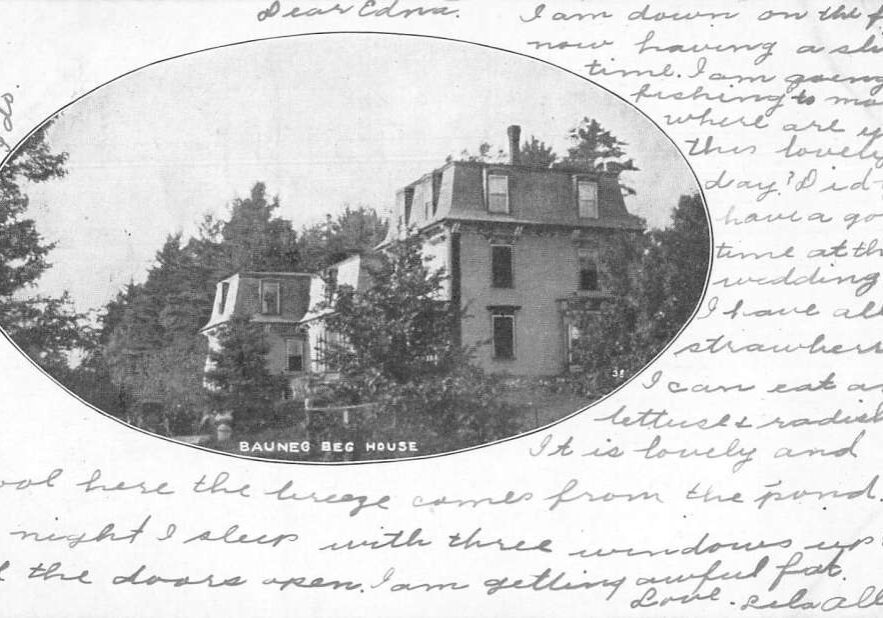 Dear Edna.
I am down on the
now having a
time. I am going
fishing to
where are
this lovely
day? Did
have a
time at
wedding
I have
I can eat
lettuse &
It is lovely and
here the breeze comes from the pond.
night I sleep with three windows up
the doors open. I am getting awful fat.
Love.
38
BAUNEG BEG HOUSE